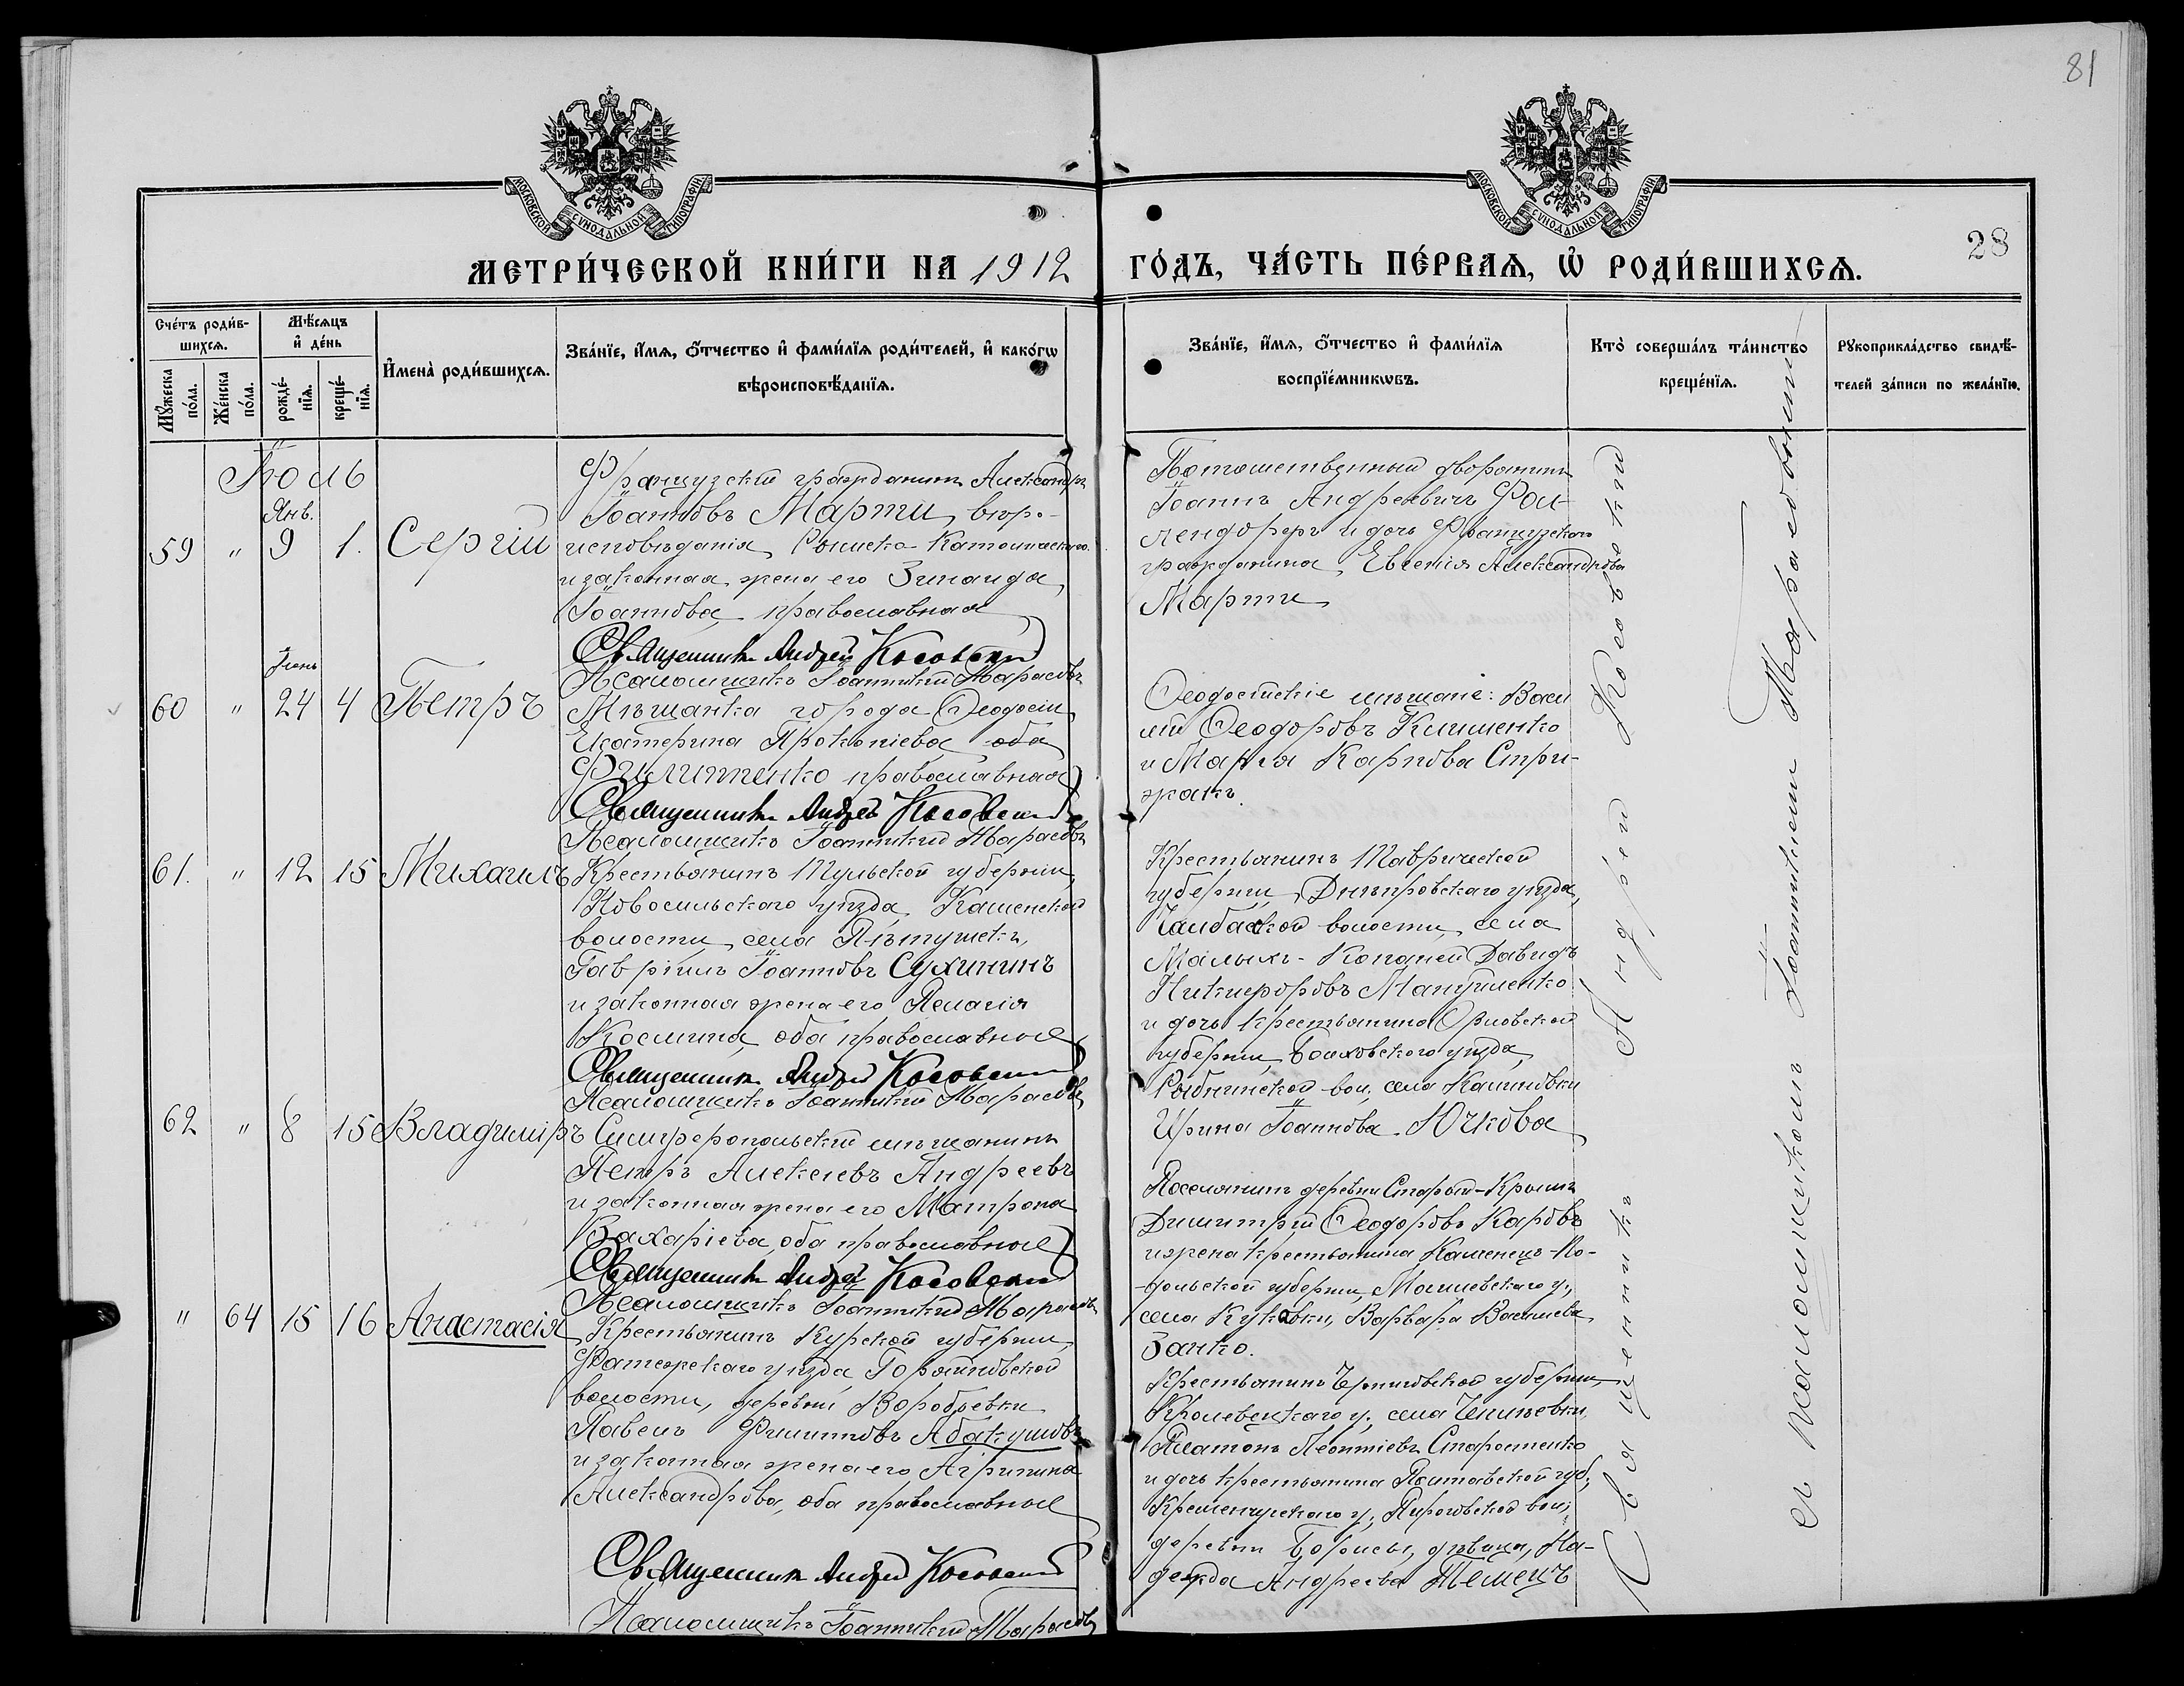 81
МОСКОВСКОЙ СѴНОДАЛЬНОЙ ТИПОГРАФІИ.
МОСКОВСКОЙ СѴНОДАЛЬНОЙ ТИПОГРАФІИ.
28
МЕТРИ́ЧЕСКОЙ КНИ́ГИ НА 1912 ГО́ДЪ, ЧА́СТЬ ПЕ́РВАЯ, Ѡ҆ РОДИ́ВШИХСЯ.
Сче́тъ роди́в-
шихся.
Мꙋ́жеска по́ла.
Же́нска по́ла.
Мѣ́сяцъ
и҆ де́нь
рожде́-
нїя.
креще́-
нїя.
И҆мена̀ роди́вшихся.
Зва́нїе, и҆́мя, ѻ҆́тчество и҆ фами́лїя роди́телей, и҆ како́гѡ
вѣроисповѣ́данїя.
Зва́нїе, и҆́мя, ѻ҆́тчество и҆ фами́лїя
воспрїе́мникѡвъ.
Кто̀ соверша́лъ та́инство
креще́нїя.
Рꙋкоприкла́дство свидѣ́-
телей за́писи по жела́нїю.
Іюль
Янв.
59 " 9 1. Сергій
Французскій гражданинъ Александръ
Іоанновъ Марти, вѣро-
исповѣданія Римско-Католическаго
и законная жена его Зинаида
Іоаннова, православная
Священникъ Андрей Косовский
Псаломщикъ Іоанникій Марасовъ
Потомственный дворянинъ
Іоаннъ Андреевичъ Фон-
лендорферъ и дочь Французскаго
гражданина, Евгенія Александрова
Марти
Іюнь
60 " 24 4 Петръ
Мѣщанка города Ѳеодосіи
Екатерина Прокопіева оба
Филипенко православная
Священникъ Андрей Косовский
Псаломщикъ Іоанникій Марасовъ
Ѳеодосійскіе мѣщане: Васи
лій Ѳеодоровъ Клименко
и Марія Карпова Стри-
жакъ.
61. " 12 15 Михаилъ
Крестьянинъ Тульской губерніи,
Новосильскаго уѣзда, Каменской
волости, села Пѣтушекъ,
Гавріилъ Іоанновъ Сухининъ
и законная жена его Пелагія
Космина, оба православные
Священникъ Андрей Косовский
Псаломщикъ Іоанникій Марасовъ
Крестьянинъ Таврической
губерніи, Днѣпровскаго уѣзда,
Чалбасской волости, села
Малыхъ-Копаней Давидъ
Никифоровъ Мануйленко
и дочь крестьянина Орловской
губерніи, Болховскаго уѣзда,
Рыбнинской вол., села Калиновки
Ирина Іоаннова Ючкова
62 " 8 15 Владиміръ
Симферопольскій мѣщанинъ
Петръ Алексеевъ Андреевъ
и законная жена его Матрона
Захаріева, оба православные
Священникъ Андрей Косовский
Псаломщикъ Іоанникій Марасовъ
Поселянинъ деревни Старый-Крымъ
Димитрій Ѳеодоровъ Карповъ
и жена крестьянина Каменецъ-По-
дольской губерніи, Могилевскаго у.,
села Куковки, Варвара Васильева
Заико.
" 64 15 16 Анастасія
Крестьянинъ Курской губерніи,
Фатежскаго уѣзда,
волости, деревни Воробьевки
Павелъ Филипповъ Абакумовъ
и законная жена его Агрипина
Александрова, оба православные
Священникъ Андрей Косовский
Псаломщикъ Іоанникій Марасовъ
Крестьянинъ Черниговской губерніи,
Кролевецкаго у., села
Платонъ Леонтіевъ Старостенко
и дочь крестьянина Полтавской губ.,
Кременчугскаго у., вол.,
деревни Борисы, дѣвица, На-
дежда Андреева Темецъ
Священникъ Андрей Косовскій
съ псаломщикомъ Іоанникіемъ Марасовымъ